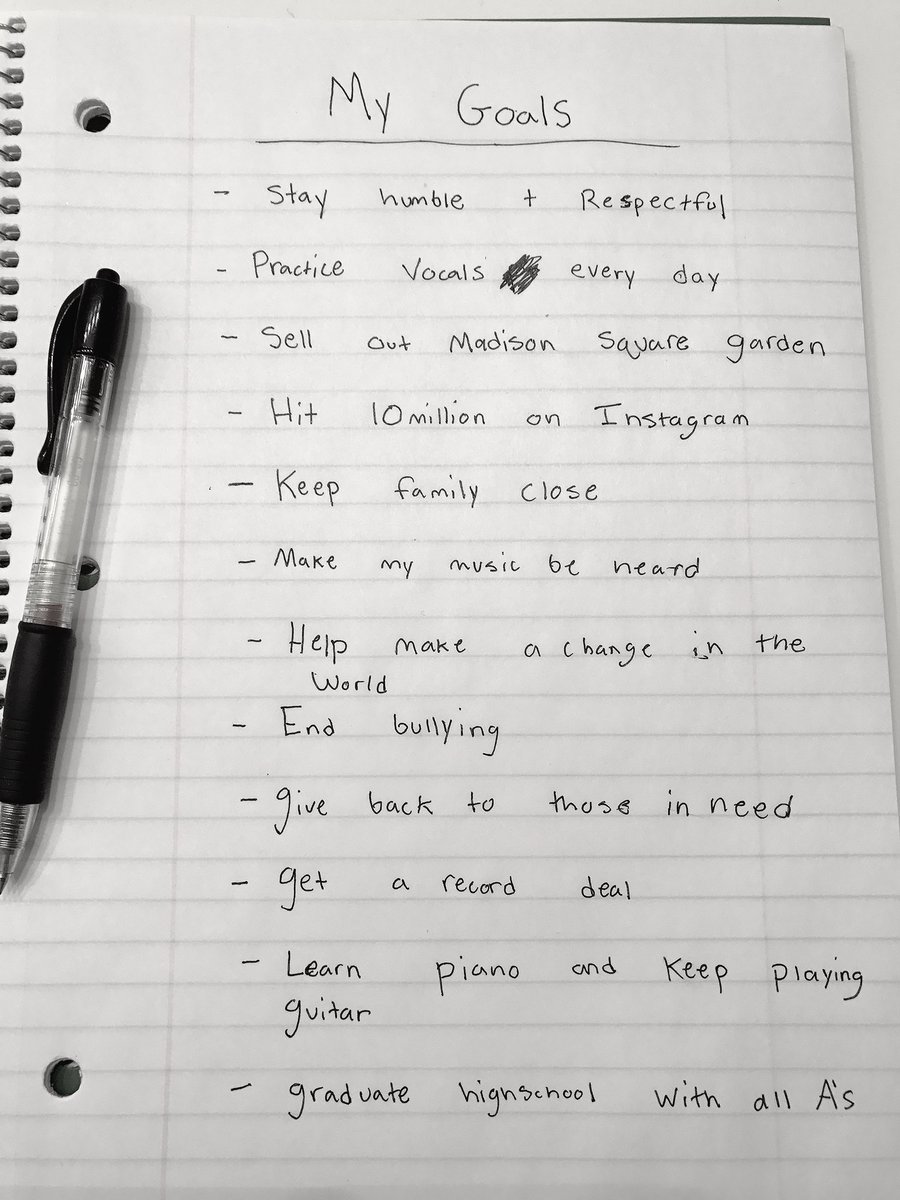 My Goals
- Stay humble + Respectful
- Practice Vocals every day
- Sell out Madison Square garden
- Hit 10 million on Instagram
- Keep family close
- Make my music be heard
- Help make a change in the
World
- End bullying
- give back to those in need
- get a record deal
- Learn piano and Keep playing
guitar
- graduate highschool with all A's